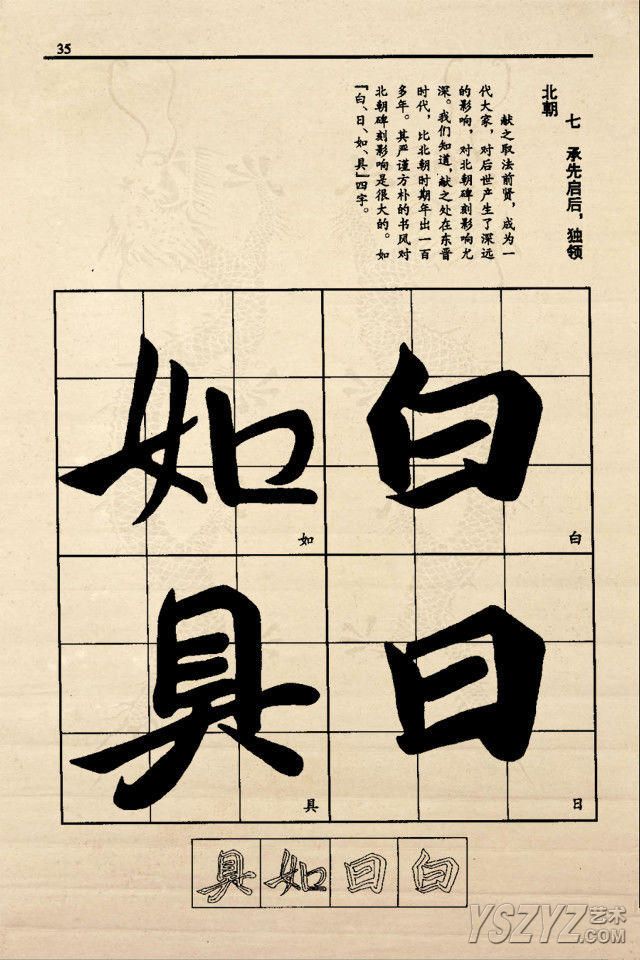 35
七　承先启后，独领
北朝
献之取法前贤，成为一
代大家，对后世产生了深远
的影响，对北朝碑刻影响尤
深。我们知道，献之处在东晋
时代，比北朝时期年出一百
多年。其严谨方朴的书风对
北朝碑刻影响是很大的。如
「白、日、如、具」四字。
白
白
日
日
如
如
具
具
具如日白
YSZYZ艺术
.COM